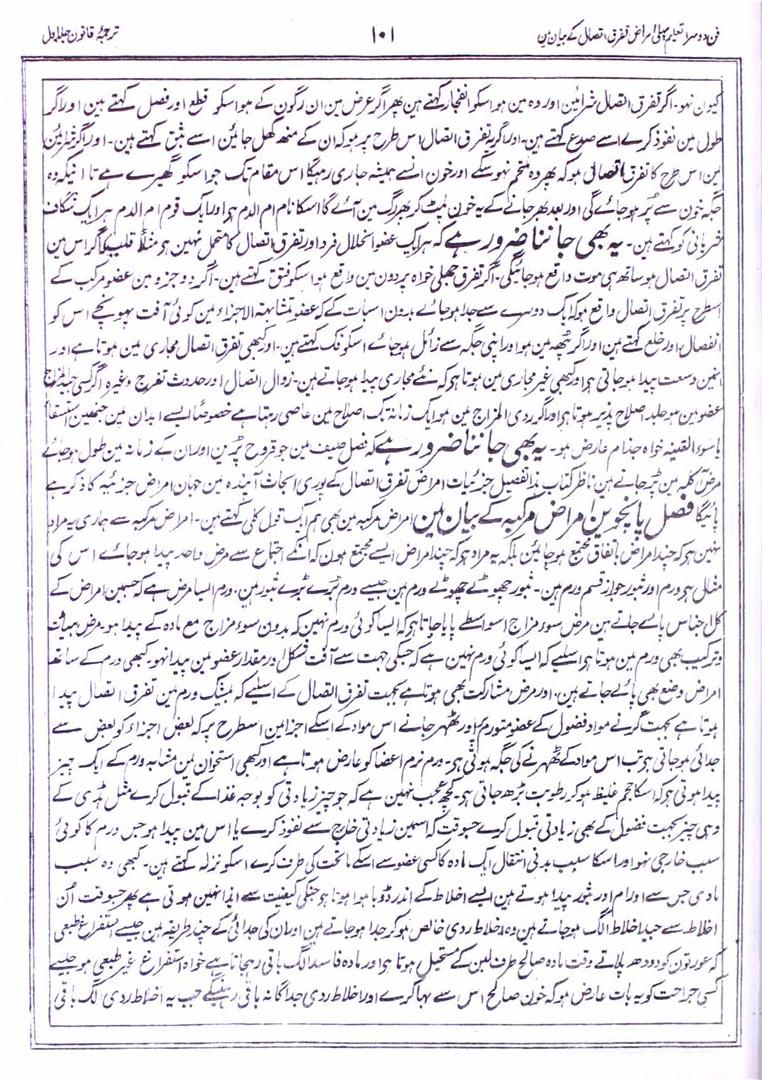 فن دوسرا تعلیم پہلی امراض تفرق اتصال کے بیان مین ۱۰۱ ترجمۂ قانون جلد اول
کیون نہو۔ اگر تفرق اتصال شرائین اور دہ مین ہو اسکو انفجار کہتے ہین پھر اگر عرض مین ان رگون کے ہو اسکو قطع اور فصل کہتے ہین اور اگر
طول مین نفوذ کرے اسے صدع کہتے ہین۔ اور اگر یہ تفرق اتصال اس طرح پر ہو کہ ان کے منھ کھل جائین اسے بثق کہتے ہین۔ اور اگر شرائین
مین اس طرح کا تفرق اتصال ہو کہ پھر وہ ملتحم نہوسکے اور خون انسے ہمیشہ جاری رہیگا اس مقام تک جو اسکو گھیرے ہے تا اینکہ وہ
جگہ خون سے پر ہو جائے گی اور بعد بھر جانے کے یہ خون لپٹ کر پھر رگ مین آئے گا اسکا نام ام الدم ہی اور ایک قوم ام الدم ہر ایک شگاف
شریانی کو کہتے ہین۔ یہ بھی جاننا ضرور ہے کہ ہر ایک عضو انحلال فرد اور تفرق اتصال کا متحمل نہین ہی مثلاً قلب کہ اگر اس مین
تفرق اتصال ہو ساتھ ہی موت واقع ہو جائیگی۔ اگر تفرق جھلی خواہ پردون مین واقع ہو اسکو فتق کہتے ہین۔ اگر دو جزو مین عضو مرکب کے
اسطرح پر تفرق اتصال واقع ہو کہ ایک دوسرے سے جدا ہو جائے بدون اسبات کے کہ عضو متشابہۃ الاجزاء مین کوئی آفت پہونچے اس کو
انفصال اور خلع کہتے ہین اور اگر پٹھہ مین ہو اور اپنی جگہ سے زائل ہو جائے اسکو فک کہتے ہین۔ اور کبھی تفرق اتصال مجاری مین ہوتا ہے اور
انمین وسعت پیدا ہو جاتی ہی اور کبھی غیر مجاری مین ہوتا ہے کہ نئے مجاری پیدا ہو جاتے ہین۔ زوال اتصال اور حدوث تقرح وغیرہ اگر کسی جید المزاج
عضو مین ہو جلد اصلاح پذیر ہوتا ہی اور اگر ردی المزاج مین ہو ایک زمانہ تک اصلاح مین عاصی رہتا ہے خصوصاً ایسے ابدان مین جنھین استسقا
یا سوء القنیہ خواہ جذام عارض ہو۔ یہ بھی جاننا ضرور ہے کہ فصل صیف مین جو قروح پڑین اور ان کے زمانہ مین طول ہو جائے
مرض آکلہ مین پڑ جاتے ہین ناظر کتاب ہذا تفصیل جزئیات امراض تفرق اتصال کے پوری ابحاث آیندہ مین جہان امراض جزئیہ کا ذکر ہے
پائیگا فصل پانچوین امراض مرکبہ کے بیان مین امراض مرکبہ مین بھی ہم ایک قول کلی کہتے ہین۔ امراض مرکبہ سے ہماری یہ مراد
نہین ہے کہ چند امراض باتفاق مجتمع ہو جائین بلکہ یہ مراد ہے کہ چند امراض ایسے مجتمع ہون کہ انکے اجتماع سے مرض واحد پیدا ہو جائے اس کی
مثال ہی ورم اور بثور جو از قسم ورم ہین۔ بثور چھوٹے چھوٹے ورم ہین جیسے ورم بڑے بڑے بثور ہین۔ ورم ایسا مرض ہے کہ جسمین امراض کے
کل اجناس پائے جاتے ہین مرض سوء مزاج اسواسطے پایا جاتا ہی کہ ایسا کوئی ورم نہین کہ بدون سوء مزاج مع مادہ کے پیدا ہو۔ مرض ہیات
و ترکیب بھی ورم مین ہوتا ہی اسلیے کہ ایسا کوئی ورم نہین ہے کہ جسکی جہت سے آفت شکل اور مقدار عضو مین پیدا نہو۔ کبھی ورم کے ساتھ
امراض وضع بھی پائے جاتے ہین۔ اور مرض مشارکت بھی ہوتا ہے بجہت تفرق اتصال کے اسلیے کہ بیشک ورم مین تفرق اتصال پیدا
ہوتا ہے بجہت گرنے مواد فضول کے عضو متورم پر اور ٹھہر جانے اس مواد کے اسکے اجزا مین اسطرح پر کہ بعض اجزا کو بعض سے
جدائی ہو جاتی ہی تب اس مواد کے ٹھہرنے کی جگہ ہوتی ہی۔ ورم نرم اعضا کو عارض ہوتا ہے اور کبھی استخوان مین مشابہ ورم کے ایک چیز
پیدا ہوتی ہی کہ اسکا حجم غلیظ ہو کر رطوبت بڑھ جاتی ہی کچھ عجب نہین ہے کہ جو چیز زیادتی کو بوجہ غذا کے قبول کرے مثل ہڈی کے
وہی چیز بجہت فضول کے بھی زیادتی قبول کرے جسوقت کہ اسمین زیادتی خارج سے نفوذ کرے یا اس مین پیدا ہو جس ورم کا کوئی
سبب خارجی نہو اور اسکا سبب بدنی انتقال ایک مادہ کا کسی عضو سے اسکے ماتحت کی طرف کرے اسکو نزلہ کہتے ہین۔ کبھی وہ سبب
مادی جس سے اورام اور بثور پیدا ہوتے ہین ایسے اخلاط کے اندر ڈوبا ہوا ہوتا ہی جنکی کیفیت سے ایذا نہین ہوتی ہے پھر جسوقت ان
اخلاط سے جید اخلاط الگ ہو جاتے ہین وہ اخلاط ردی خالص ہو کر جدا ہو جاتے ہین اور ان کی جدائی کے چند طریقہ ہین جیسے استفراغ طبعی
کہ عورتون کو دودھ پلاتے وقت مادہ صالح طرف لبن کے مستحیل ہوتا ہی اور مادہ فاسد الگ باقی رہجاتا ہے خواہ استفراغ غیر طبیعی ہو جیسے
کسی جراحت کو یہ بات عارض ہو کہ خون صالح اس سے بہا کرے اور اخلاط ردی جداگانہ باقی رہینگے جب یہ اخلاط ردی الگ باقی